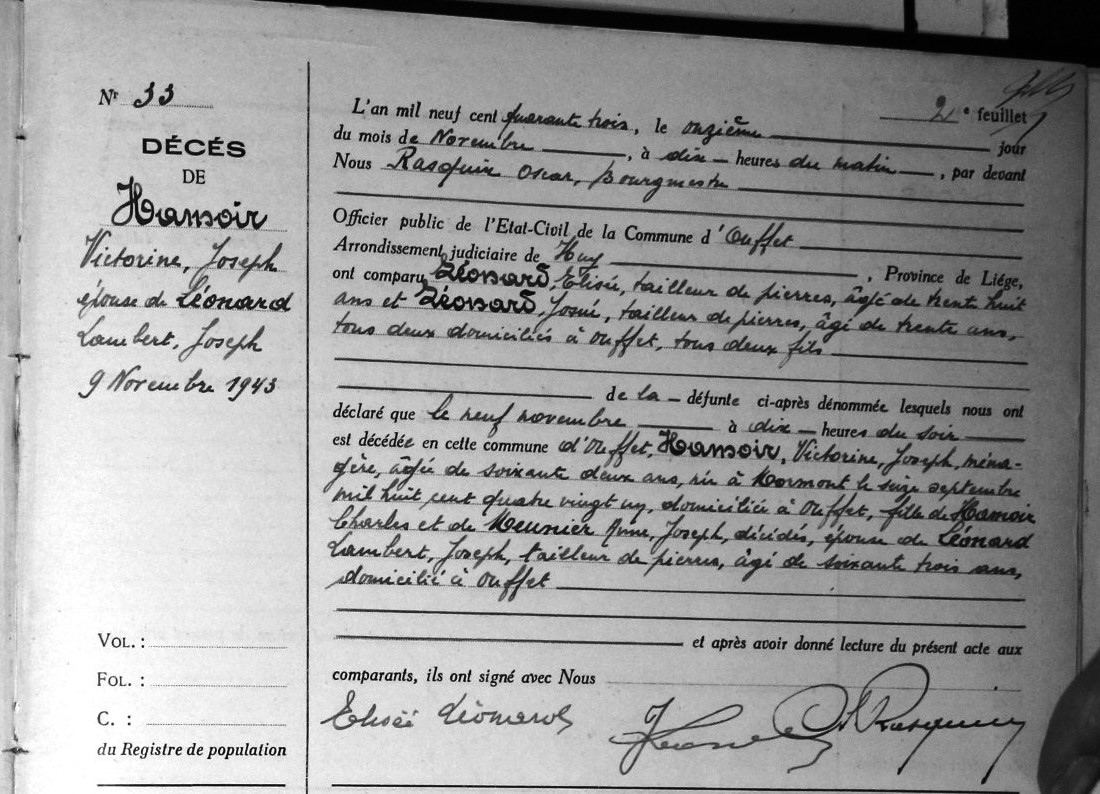 Nr 33
DÉCÉS
DE
Hamoir
Victorine, Joseph
épouse de Léonard
Lambert, Joseph
9 Novembre 1943
VOL. :
FOL. :
C. :
du Registre de population
2e feuillet
L'an mil neuf cent quarante trois, le onzième jour
du mois de Novembre, à dix heures du matin, par devant
Nous Rasquin Oscar, Bourgmestre
Officier public de l'Etat-Civil de la Commune d'Ouffet
Arrondissement judiciaire de Huy, Province de Liége,
ont comparu Léonard, Elisée, tailleur de pierres, âgé de trente huit
ans et Léonard, Josué, tailleur de pierres, âgé de trente ans,
tous deux domiciliés à Ouffet, tous deux fils
de la défunte ci-après dénommée lesquels nous ont
déclaré que le neuf novembre à dix heures du soir
est décédée en cette commune d'Ouffet, Hamoir, Victorine, Joseph, ména-
gère, âgée de soixante deux ans, née à Mormont le seize septembre
mil huit cent quatre vingt un, domiciliée à Ouffet, fille de Hamoir
Charles et de Meunier Anne, Joseph, décédés, épouse de Léonard
Lambert, Joseph, tailleur de pierres, âgé de soixante trois ans,
domicilié à Ouffet
et après avoir donné lecture du présent acte aux
comparants, ils ont signé avec Nous
Elisée Léonard
Rasquin